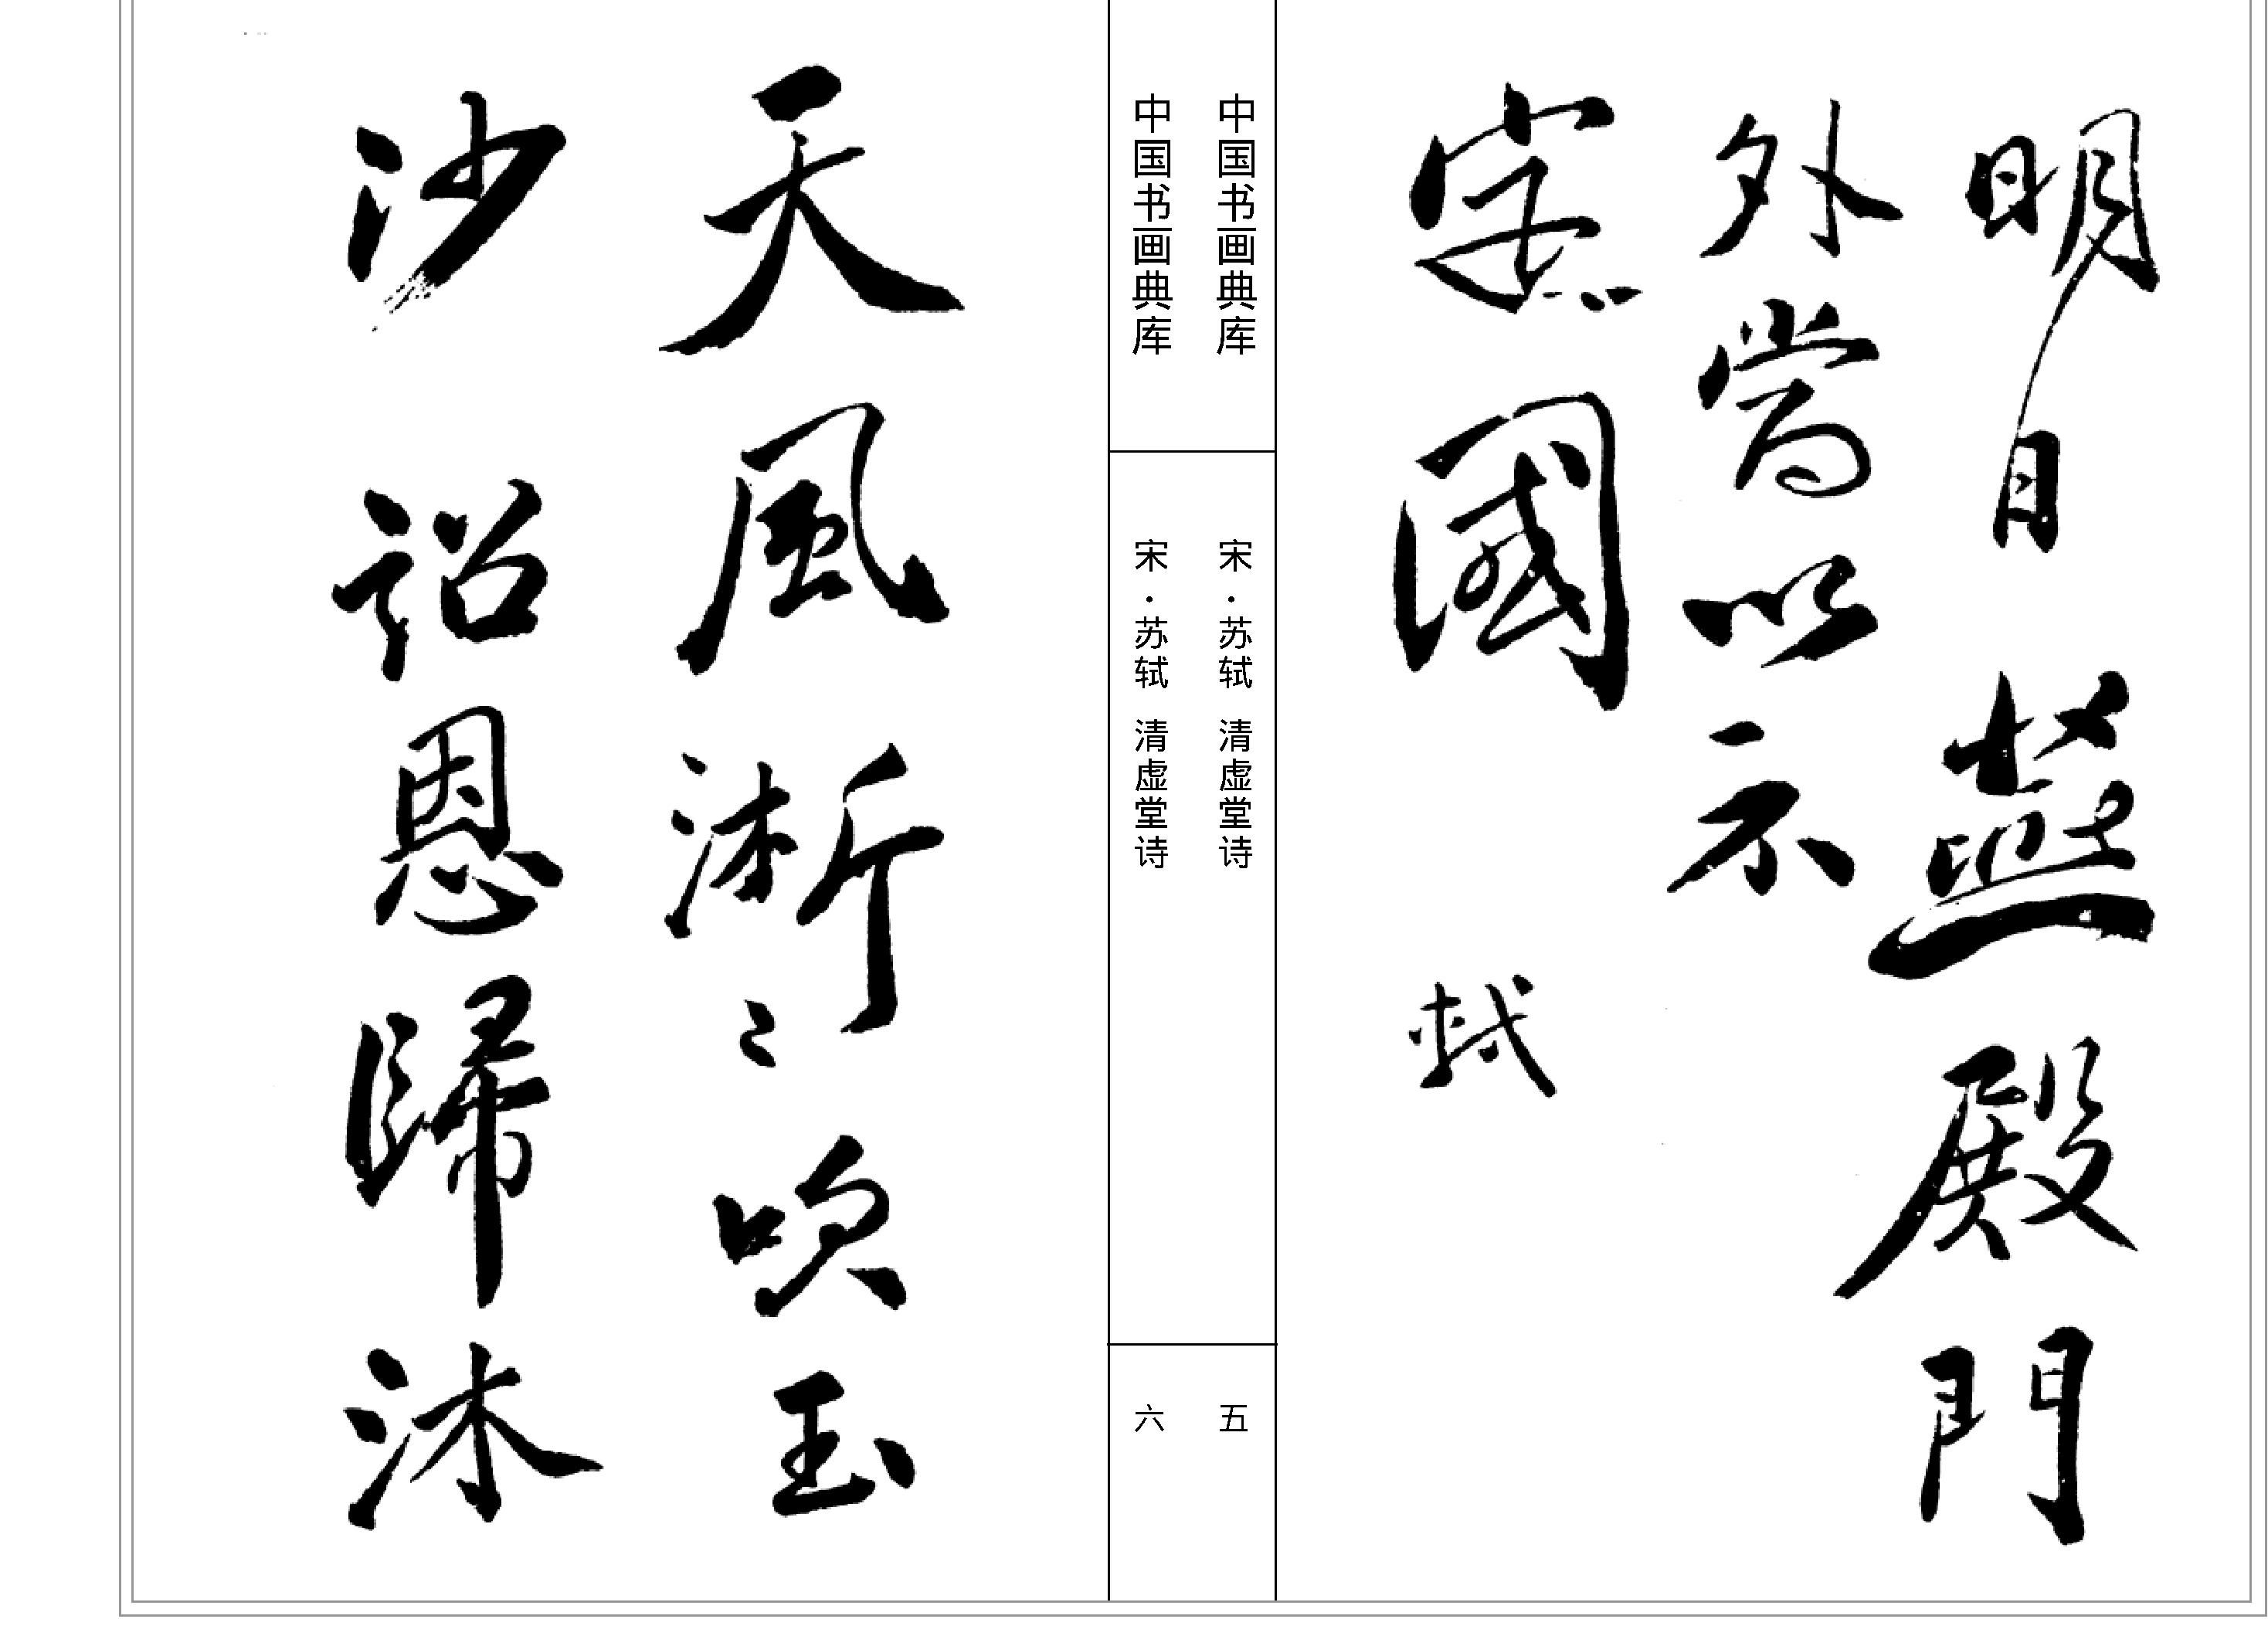 明日燕殿門
外當以示
定國 軾
中国书画典库 宋·苏轼 清虚堂诗 五
中国书画典库 宋·苏轼 清虚堂诗 六
天風淅〻吹玉
沙詔恩歸沐